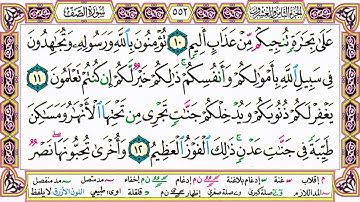 الجزء الثامن والعشرون ٥٥٢ سورة الصف
عَلَىٰ تِجَٰرَةٍ تُنجِيكُم مِّنْ عَذَابٍ أَلِيمٍ ١٠ تُؤْمِنُونَ بِٱللَّهِ وَرَسُولِهِۦ وَتُجَٰهِدُونَ
فِى سَبِيلِ ٱللَّهِ بِأَمْوَٰلِكُمْ وَأَنفُسِكُمْ ۚ ذَٰلِكُمْ خَيْرٌ لَّكُمْ إِن كُنتُمْ تَعْلَمُونَ ١١
يَغْفِرْ لَكُمْ ذُنُوبَكُمْ وَيُدْخِلْكُمْ جَنَّٰتٍ تَجْرِى مِن تَحْتِهَا ٱلْأَنْهَٰرُ وَمَسَٰكِنَ
طَيِّبَةً فِى جَنَّٰتِ عَدْنٍ ۚ ذَٰلِكَ ٱلْفَوْزُ ٱلْعَظِيمُ ١٢ وَأُخْرَىٰ تُحِبُّونَهَا ۖ نَصْرٌ